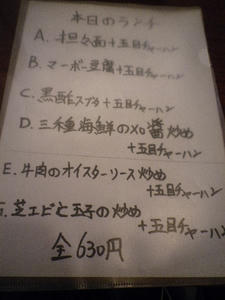 本日のランチ
A. 担々面+五目チャーハン
B. マーボー豆腐+五目チャーハン
C. 黒酢スブタ+五目チャーハン
D. 三種海鮮のXO醤炒め
+五目チャーハン
E. 牛肉のオイスターソース炒め
+五目チャーハン
芝エビと玉子の炒め
+五目チャーハン
全630円